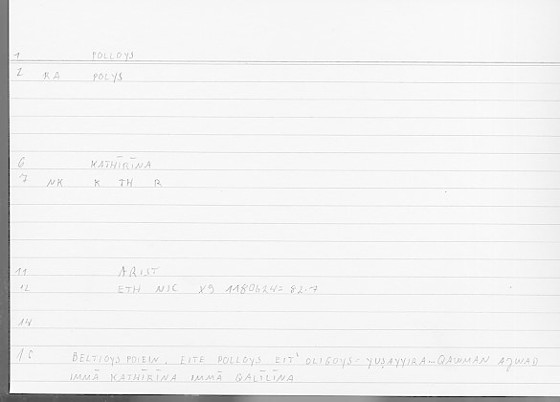 1 POLLOYS
2 KA POLYS
6 KATHĪRĪNA
7 NK K TH R
11 ARIST
12 ETH NIC X9 1180b24= 82.7
14
15 BELTIOYS POIEIN, EITE POLLOYS EIT' OLIGOYS - YUṢAYYIRA - QAWMAN AJWAD
IMMĀ KATHĪRĪNA IMMĀ QALĪLĪNA